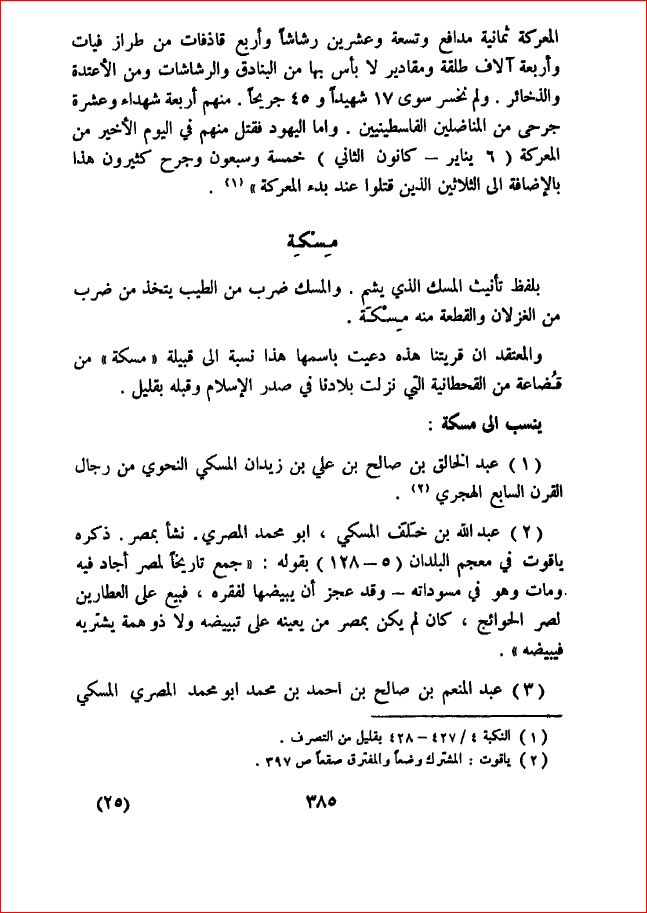 المعركة ثمانية مدافع وتسعة وعشرين رشاشاً وأربع قاذفات من طراز فيات
وأربعة آلاف طلقة ومقادير لا بأس بها من البنادق والرشاشات ومن الأعتدة
والذخائر . ولم نخسر سوى ١٧ شهيداً و ٤٥ جريحاً . منهم أربعة شهداء وعشرة
جرحى من المناضلين الفلسطينيين . واما اليهود فقتل منهم في اليوم الأخير من
المعركة ( ٦ يناير – كانون الثاني ) خمسة وسبعون وجرح كثيرون هذا
بالإضافة الى الثلاثين الذين قتلوا عند بدء المعركة » (١) .
مِسْكَيِة
بلفظ تأنيث المسك الذي يشم . والمسك ضرب من الطيب يتخذ من ضرب
من الغزلان والقطعة منه مِسْكَة .
والمعتقد ان قريتنا هذه دعيت باسمها هذا نسبة الى قبيلة « مسكة » من
قُضاعة من القحطانية التي نزلت بلادنا في صدر الإسلام وقبله بقليل .
ينسب الى مسكة :
(١) عبد الخالق بن صالح بن علي بن زيدان المسكي النحوي من رجال
القرن السابع الهجري (٢) .
(٢) عبد الله بن خَلَف المسكي ، ابو محمد المصري . نشأ بمصر . ذكره
ياقوت في معجم البلدان ( ٥ – ١٢٨ ) بقوله : « جمع تاريخاً لمصر أجاد فيه
ومات وهو في مسوداته – وقد عجز أن يبيضها لفقره ، فبيع على العطارين
لصر الحوائج ، كان لم يكن بمصر من يعينه على تبييضه ولا ذو همة يشتريه
فيبيضه » .
(٣) عبد المنعم بن صالح بن احمد بن محمد ابو محمد المصري المسكي
(١) النكبة ٤ / ٤٢٧ – ٤٢٨ بقليل من التصرف .
(٢) ياقوت : المشترك وضعاً والمفترق صقعاً ص ٣٩٧ .
٣٨٥
(٢٥)